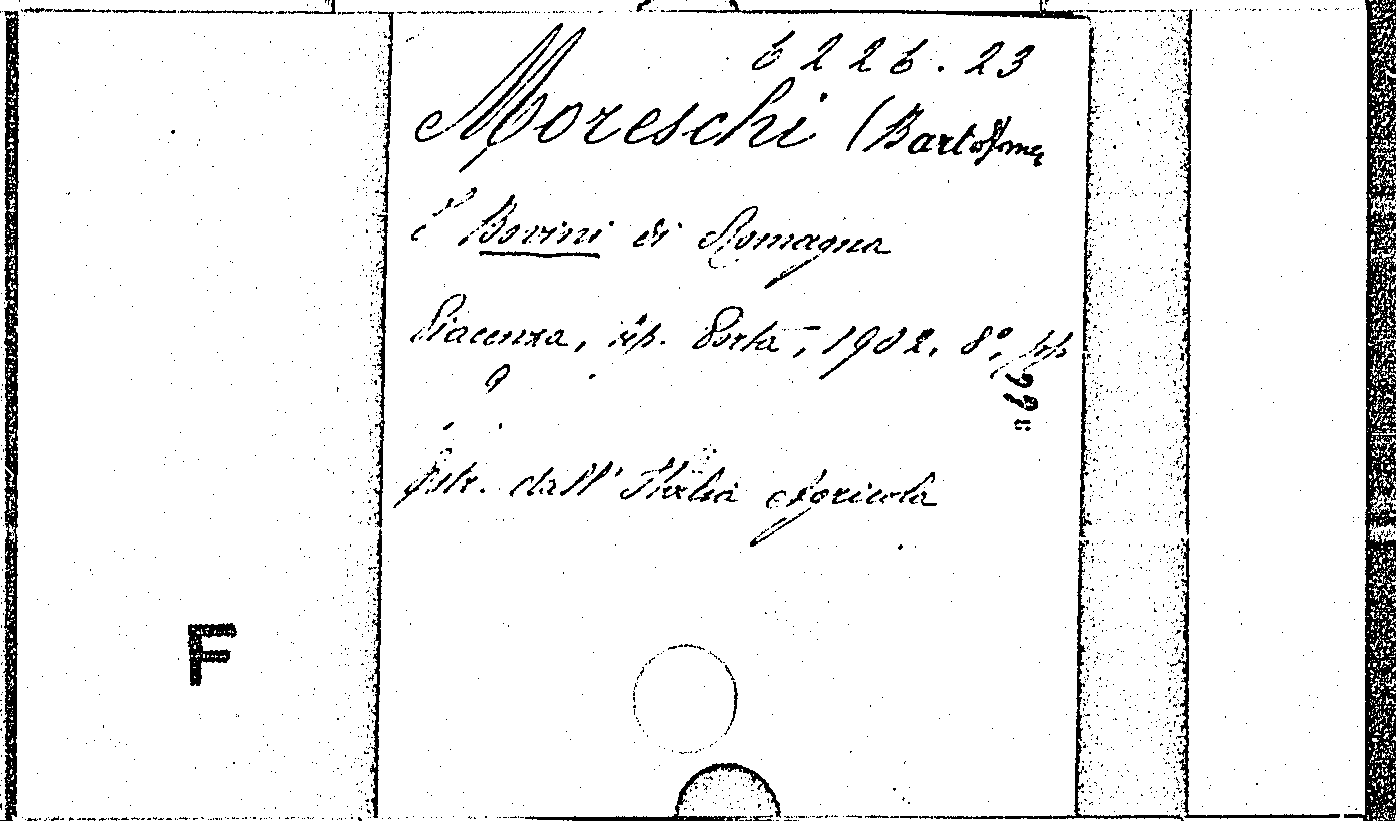 6226.23
Moreschi (Bartolomeo
I Bovini di Romagna
Piacenza, tip. Porta, 1902. 8°, pp
66
Estr. dall' Italia Agricola
F